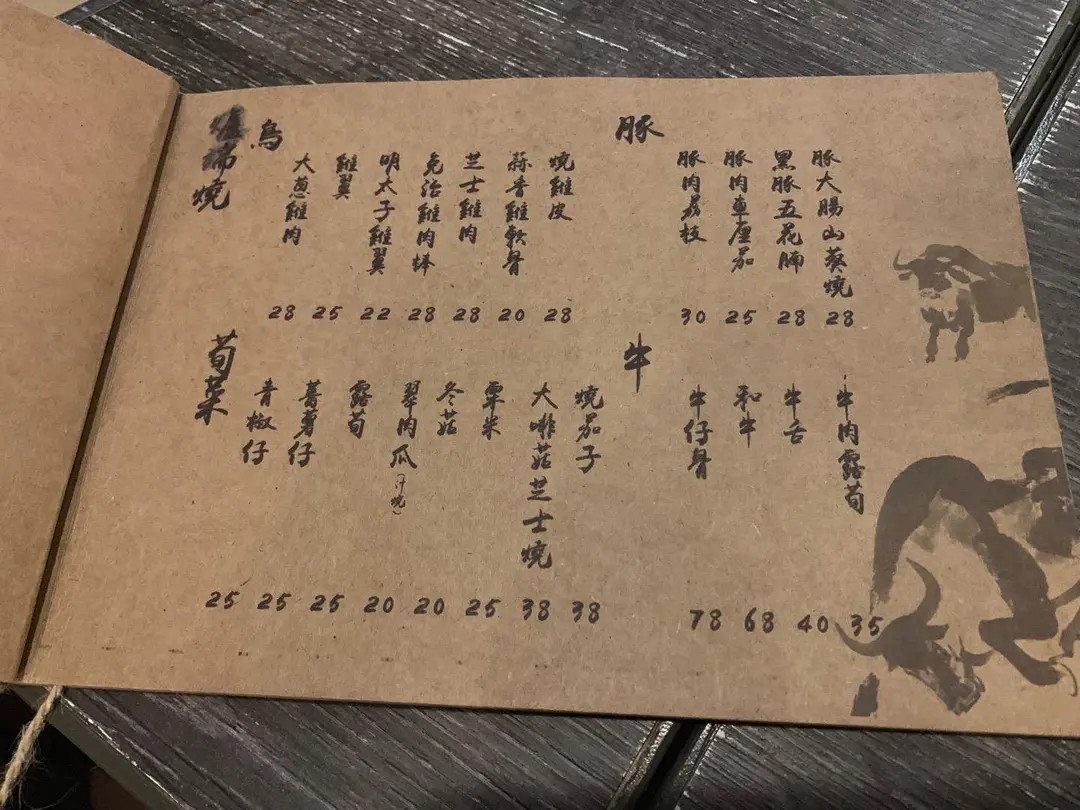 爐端燒
鳥
大蔥雞肉
雞翼
明太子雞翼
免治雞肉
芝士雞肉
蒜香雞軟骨
燒雞皮
28 25 22 28 28 20 28
豚
豚肉荔枝
豚肉車厘茄
黑豚五花腩
豚大腸山葵燒
30 25 28 28
荀菜
青椒仔
蕃薯仔
露荀
翠肉瓜
冬菇
粟米
大啡菇芝士燒
燒茄子
25 25 25 20 20 25 38 38
牛
牛仔骨
和牛
牛舌
牛肉露荀
78 68 40 35